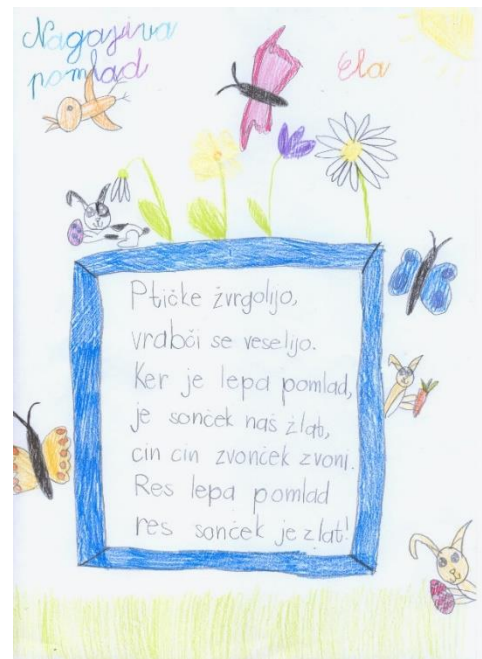 Nagajiva
pomlad
Ela
Ptičke žvrgolijo,
vrabči se veselijo.
Ker je lepa pomlad,
je sonček naš zlat,
cin cin zvonček zvoni.
Res lepa pomlad
res sonček je zlat!